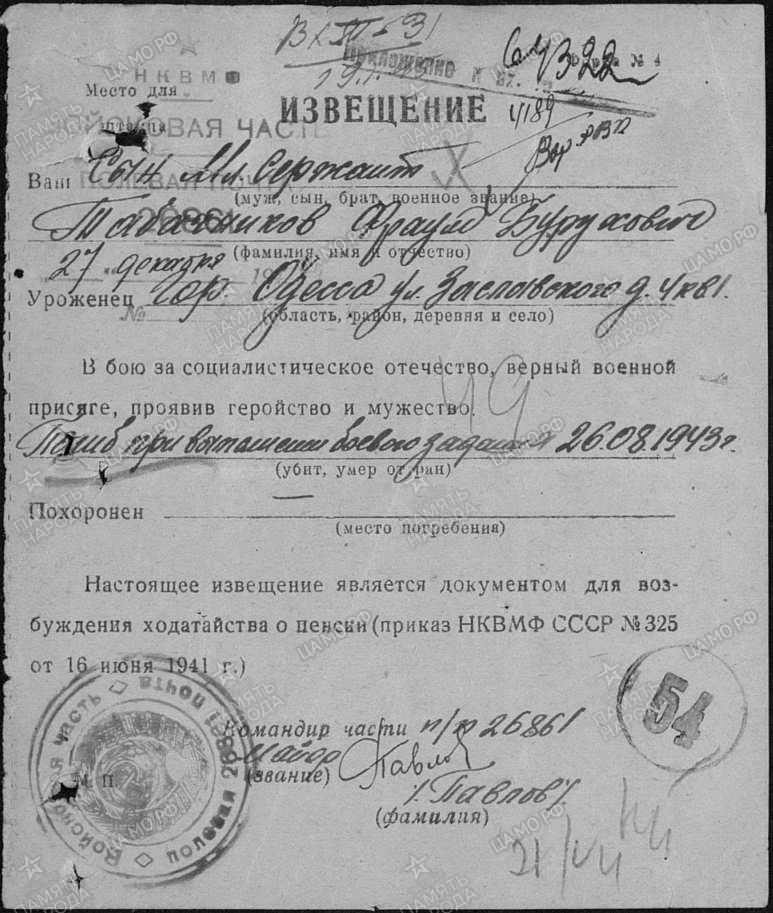 Приложение к вх.
Форма № 4
НКВМФ
Место для
штампа
ВОЙСКОВАЯ ЧАСТЬ
ИЗВЕЩЕНИЕ
4189
4322
Ваш сын мл. Сержант
ПОЛЕВАЯ ПОЧТА
(муж, сын, брат, военное звание)
26861
Табачников Фраим Бурухович
(фамилия, имя и отчество)
27 декабря 19
Уроженец Гор. Одесса ул. Заславского д. 4 кв 1.
№
(область, район, деревня и село)
В бою за социалистическое отечество, верный военной
присяге, проявив геройство и мужество.
49
Погиб при выполнении боевого задания 26.08.1943 г.
(убит, умер от ран)
Похоронен —
(место погребения)
Настоящее извещение является документом для воз-
буждения ходатайства о пенсии (приказ НКВМФ СССР № 325
от 16 июня 1941 г.)
54
Командир части п/п 26861
Майор Павлов
(звание)
/Павлов/
(фамилия)
М. П.
Войсковая часть ◇ полевая почта 26861 ◇
21/VII
ПАМЯТЬ НАРОДА
ЦАМО.РФ